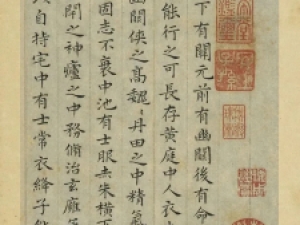 下有關元前有幽關後有命
能行之可長存黃庭中人衣
幽關俠之高魏〻丹田之中精氣
固志不衰中池有士服赤朱橫下
閉之神廬之中務脩治玄
自持宅中有士常衣絳子能